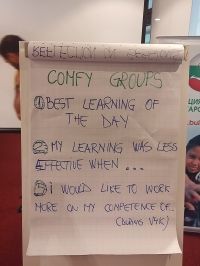 REFLECTION IN
COMFY GROUPS
1 BEST LEARNING OF
THE DAY
2 MY LEARNING WAS LESS
EFFECTIVE WHEN ...
3 I WOULD LIKE TO WORK
MORE ON MY COMPETENCE OF...
(DURING V4K)